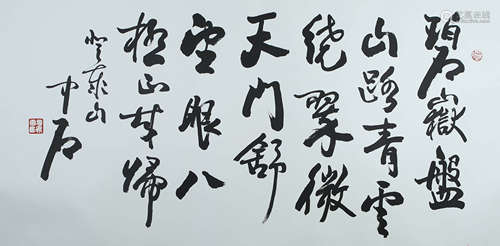 碧嶽盤
山路青雲
繞翠微
天門舒
望眼八
極正來歸
登泰山
中石